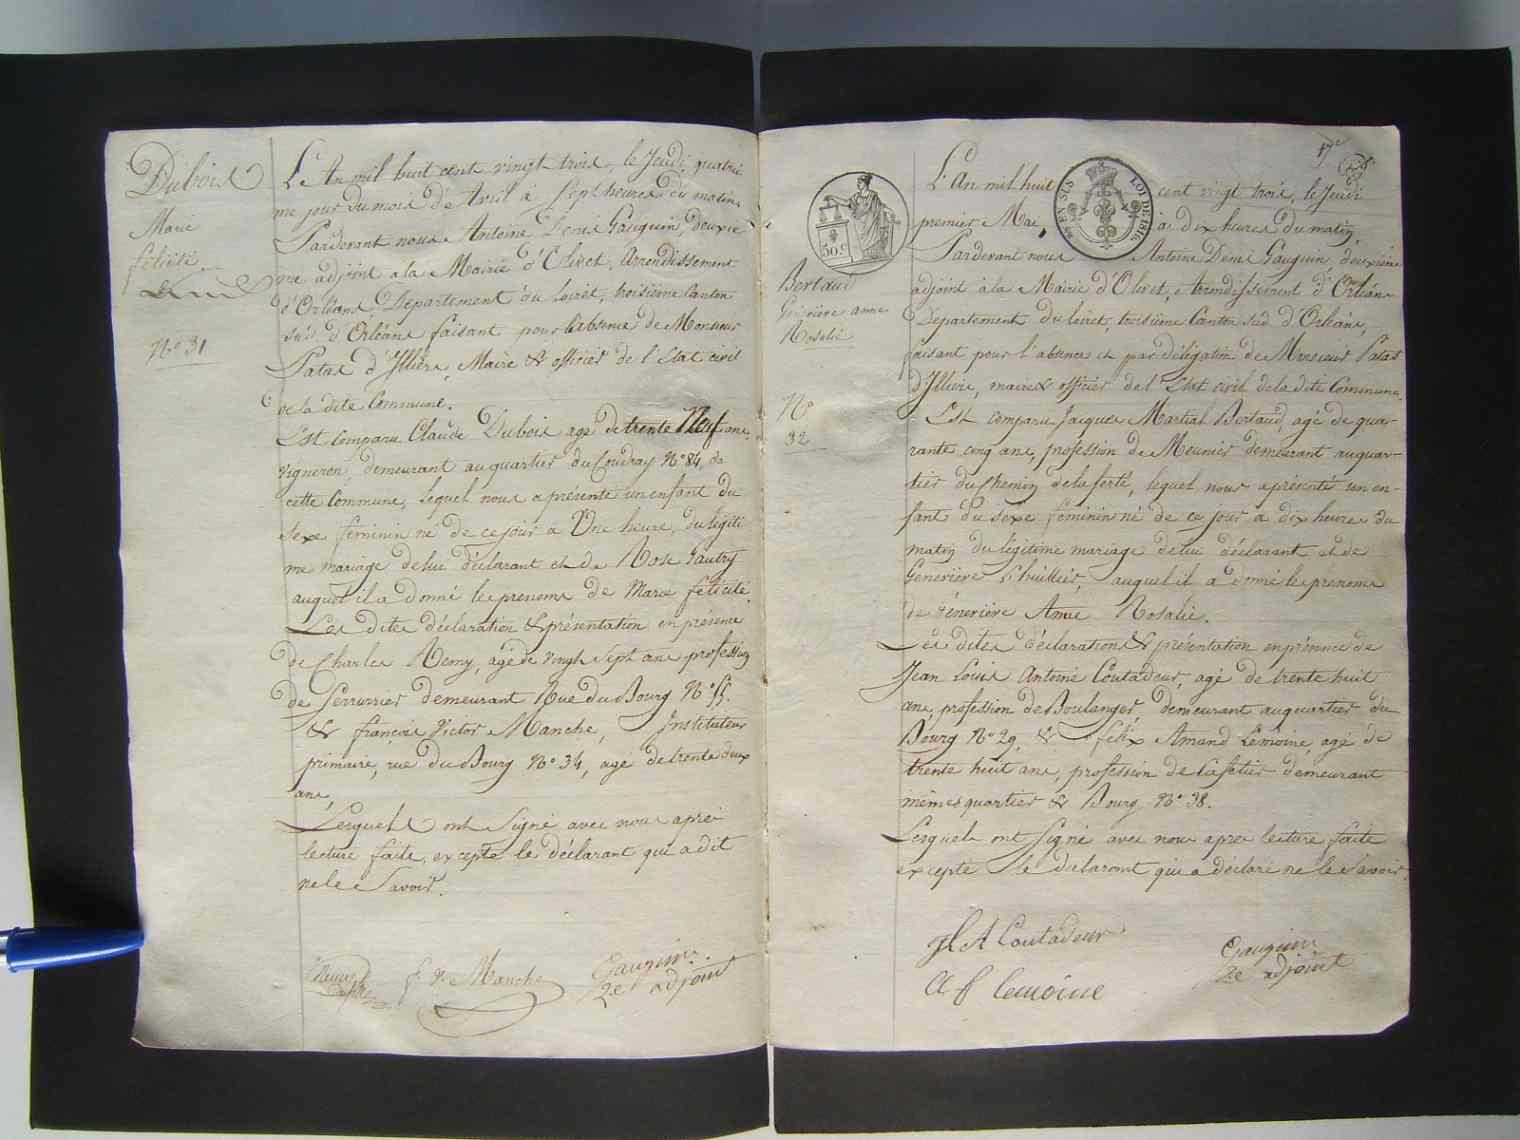 Dubois
Marie
félicité
N° 31
L'An mil huit cent vingt trois, le Jeudi quatriè
me jour du mois d'Avril à sept heures du matin,
Pardevant nous Antoine Denis Gauguin, deuxiè
me adjoint a la Mairie d'Olivet, Arrondissement
d'Orléans, Département du Loiret, troisième Canton
sud d'Orléans faisant pour l'absence de Monsieur
Patas d'Illiers, Maire & officier de l'Etat civil
de la dite Commune.
Est comparu Claude Dubois agé de trente Neuf ans,
vigneron, demeurant au quartier du Coudray N° 84, de
cette Commune, lequel nous a présenté un enfant du
sexe féminin né de ce jour à Une heure, du légiti
me mariage de lui déclarant et de Rose Gautry
auquel il a donné les prenoms de Marie félicité.
Les dites déclaration & présentation en présence
de Charles Remy, agé de vingt sept ans profession
de Serrurier demeurant Rue du Bourg N° 55.
& françois Victor Manche, Instituteur
primaire, rue du Bourg N° 34, agé de trente deux
ans,
Lesquels ont signé avec nous après
lecture faite, excepté le déclarant qui a dit
ne le Savoir.
f. V. Manche
Gauguin
2e adjoint
17e
50 c
EN SUS
LOI DE 1816
Bertaud
Geneviève anne
Rosalie
N°
32
L'An mil huit cent vingt trois, le Jeudi
premier Mai, à dix heures du matin,
Pardevant nous Antoine Denis Gauguin deuxième
adjoint à la Mairie d'Olivet, Arrondissement d'Orléans
Département du Loiret, troisième Canton sud d'Orléans,
faisant pour l'absence et par délégation de Monsieur Patas
d'Illiers, maire & officier de l'Etat civil de la dite Commune,
Est comparu Jacques Martial Bertaud, agé de qua-
rante cinq ans, profession de Meunier demeurant au quar-
tier du Chemin de la ferté, lequel nous a présenté un en-
fant du sexe féminin né de ce jour à dix heures du
matin du légitime mariage de lui déclarant et de
Geneviève Lhuillier, auquel il a donné les prenoms
de Géneviève Anne Rosalie.
Les dites déclaration & présentation en présence de
Jean Louis Antoine Coutadeur, agé de trente huit
ans, profession de Boulanger, demeurant au quartier du
Bourg N° 29, & félix Amand Lemoine, agé de
trente huit ans, profession de Cafetier demeurant
mêmes quartier & Bourg N° 38.
Lesquels ont signé avec nous après lecture faite
excepté le déclarant qui a déclaré ne le Savoir.
J L A Coutadeur
Gauguin
2e adjoint
A f lemoine